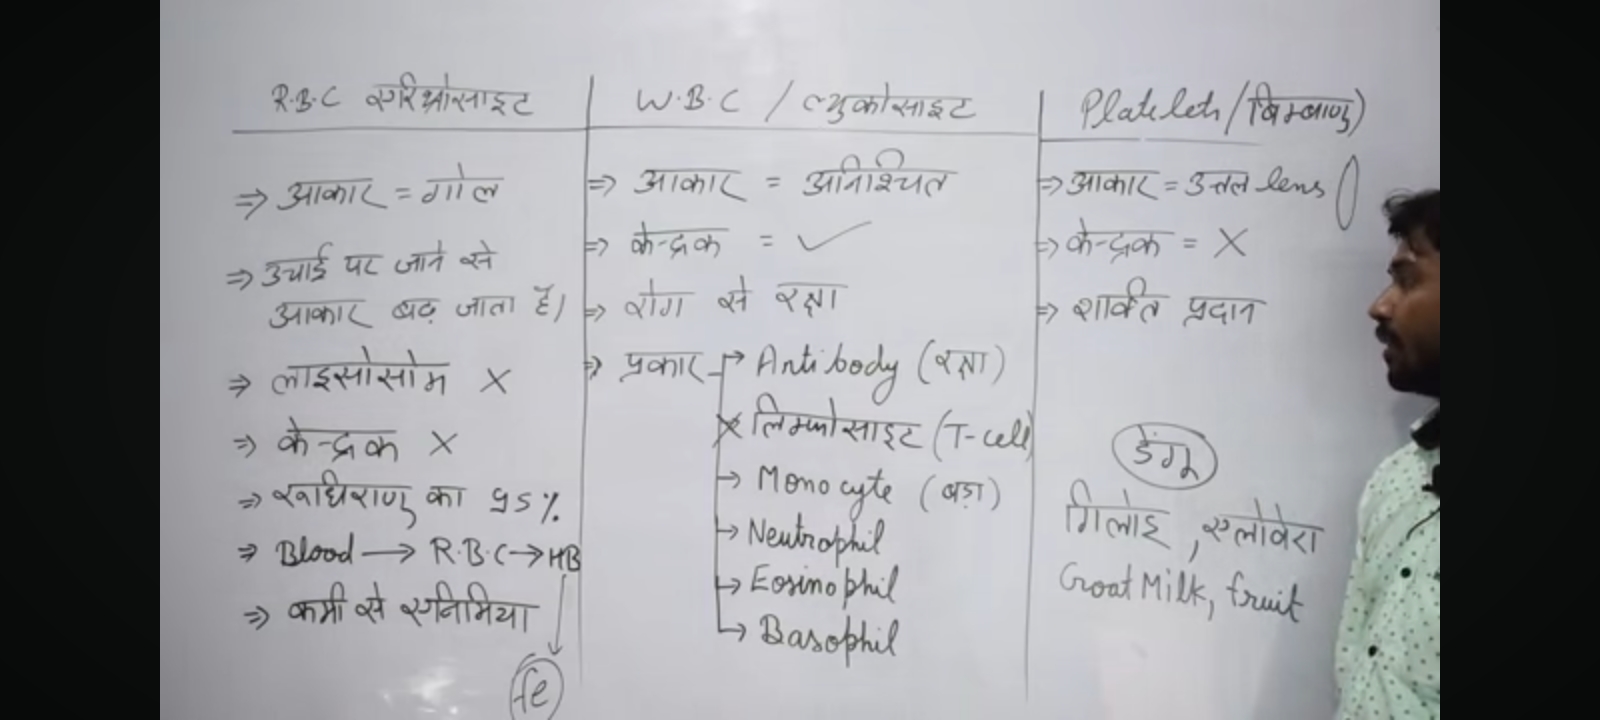 R.B.C एरिथ्रोसाइट
⇒ आकार = गोल
⇒ उचाई पर जाने से
आकार बढ़ जाता है।
⇒ लाइसोसोम X
⇒ केन्द्रक X
⇒ रूधिराणु का 95%
⇒ Blood → R.B.C → HB
⇒ कमी से एनिमिया
fe
W.B.C / ल्युकोसाइट
⇒ आकार = अनिश्चित
⇒ केन्द्रक = ✓
⇒ रोग से रक्षा
⇒ प्रकार → Antibody (रक्षा)
लिम्फोसाइट (T-cell)
→ Monocyte (बड़ा)
→ Neutrophil
→ Eosinophil
→ Basophil
Platelets/बिम्बाणु)
⇒ आकार = उत्तल lens
⇒ केन्द्रक = X
⇒ शक्ति प्रदान
डेंगू
गिलोइ, एलोवेरा
Goat Milk, fruit